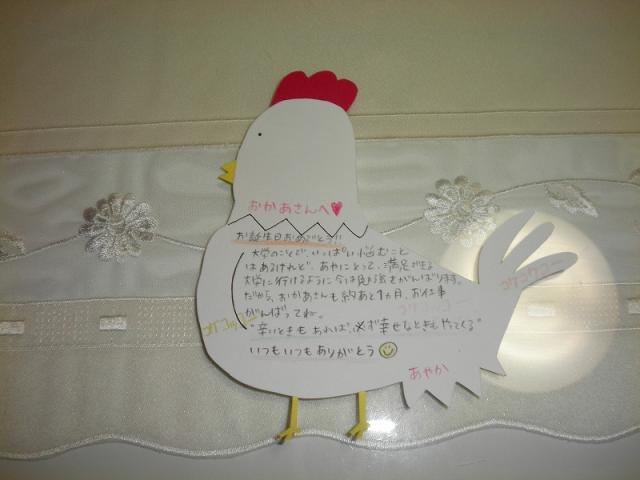 おかあさんへ♥
お誕生日おめでとう!!
大学のことで、いっぱい悩むこと
はあるけれど、あやにとって、満足できる
大学に行けるように今は勉強をがんばります。
だから、おかあさんも約あと1ヵ月、お仕事
がんばってね。
"辛いときもあれば、必ず幸せなときもやってくる"
いつもいつもありがとう
コケコッコー
コケコッコー
コケコッコー
あやか